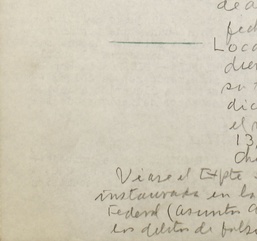 de a
fed
Loca
dier
su
dic
el
13,
Véase el Expte
instaurada en la
Federal (asunto a
los delitos de fals